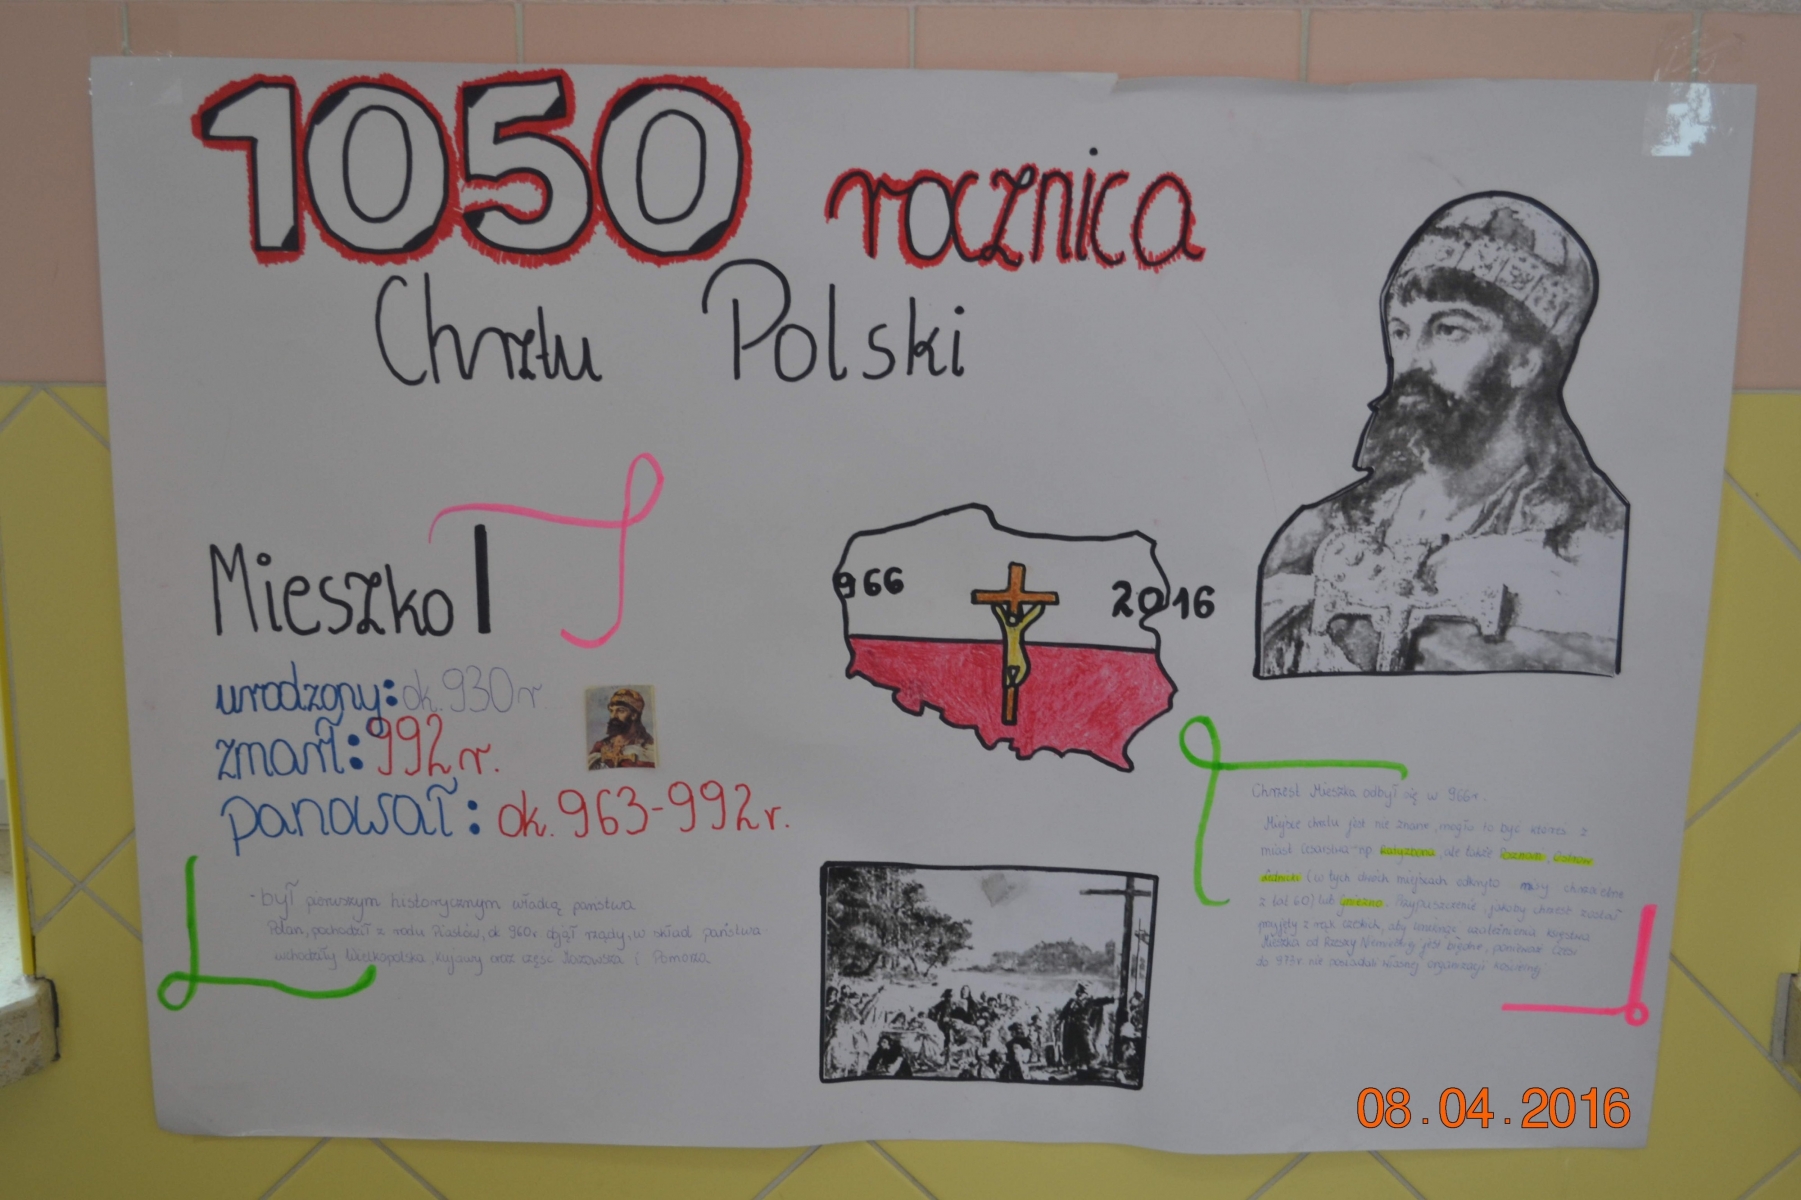 1050 rocznica
Chrztu Polski
Mieszko I
urodzony: ok. 930 r
zmarł: 992 r.
panował: ok. 963-992 r.
966
2016
- był pierwszym historycznym władcą państwa
Polan, pochodził z rodu Piastów, ok 960r objął rządy, w skład państwa
wchodziły Wielkopolska, Kujawy oraz część Mazowsza i Pomorza
Chrzest Mieszka odbył się w 966r.
Miejsce chrztu jest nie znane, mogło to być któreś z
miast cesarstwa np. Ratyzbona, ale także Poznań, Ostrów
Lednicki (w tych dwóch miejscach odkryto misy chrzcielne
z lat 60) lub Gniezno. Przypuszczenie, jakoby chrzest został
przyjęty z rąk czeskich, aby uniknąć uzależnienia księstwa
Mieszka od Rzeszy Niemieckiej jest błędne, ponieważ Czesi
do 973r nie posiadali własnej organizacji kościelnej
08.04.2016